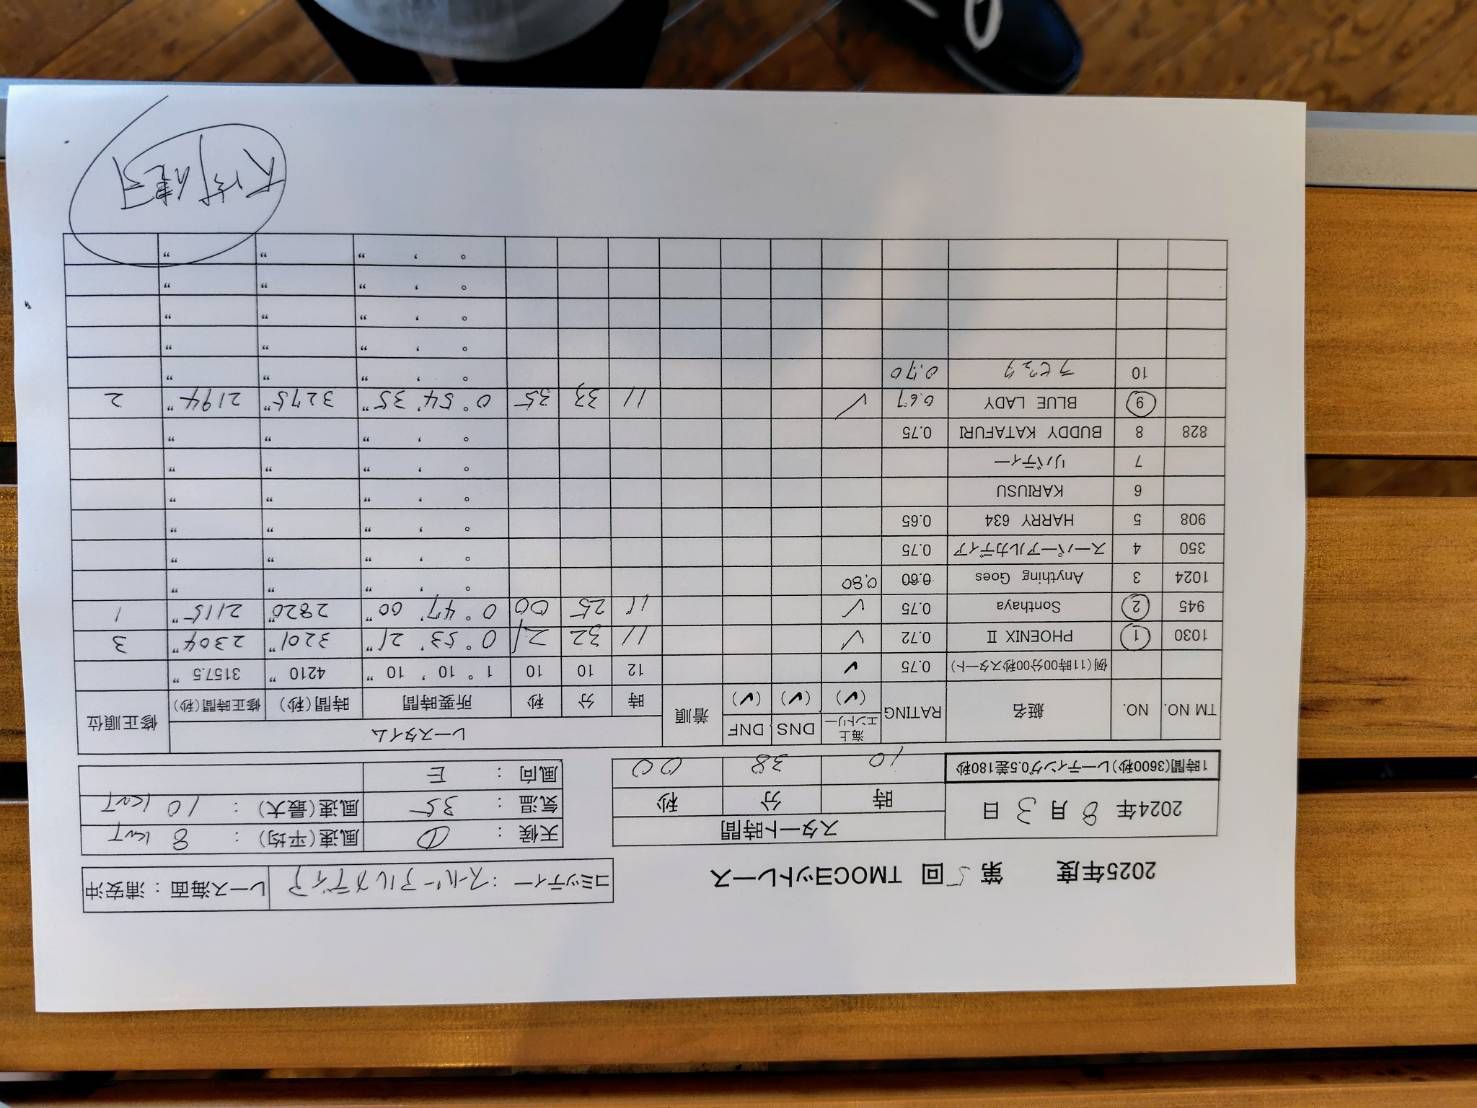 2025年度 第5回 TMOCヨットレース
コミッティー：スーパーアルカディア レース海面：浦安沖
2024年 8月 3日
1時間(3600秒)レーティング0.5差180秒
スタート時間
時 分 秒
10 38 00
天候： 風速(平均)： 8 knT
気温： 35 風速(最大)： 10 knT
風向： E
TM NO. NO. 艇名 RATING 海上エントリー(✓) DNS(✓) DNF(✓) 着順 レースタイム 修正順位
時 分 秒 所要時間 時間(秒) 修正時間(秒)
例(11時00分00秒スタート) 0.75 ✓ 12 10 10 1° 10' 10" 4210" 3157.5"
1030 1 PHOENIX Ⅱ 0.72 ✓ 11 32 21 0° 53' 21" 3201" 2304" 3
945 2 Sonthaya 0.75 ✓ 11 25 00 0° 47' 00" 2820" 2115" 1
1024 3 Anything Goes 0.60 0.80 ° ' " " "
350 4 スーパーアルカディア 0.75 ° ' " " "
908 5 HARRY 634 0.65 ° ' " " "
6 KARIUSU ° ' " " "
7 リバティー ° ' " " "
828 8 BUDDY KATAFURI 0.75 ° ' " " "
9 BLUE LADY 0.67 ✓ 11 33 35 0° 54' 35" 3275" 2194" 2
10 ラピュタ 0.70 ° ' " " "
° ' " " "
° ' " " "
° ' " " "
° ' " " "